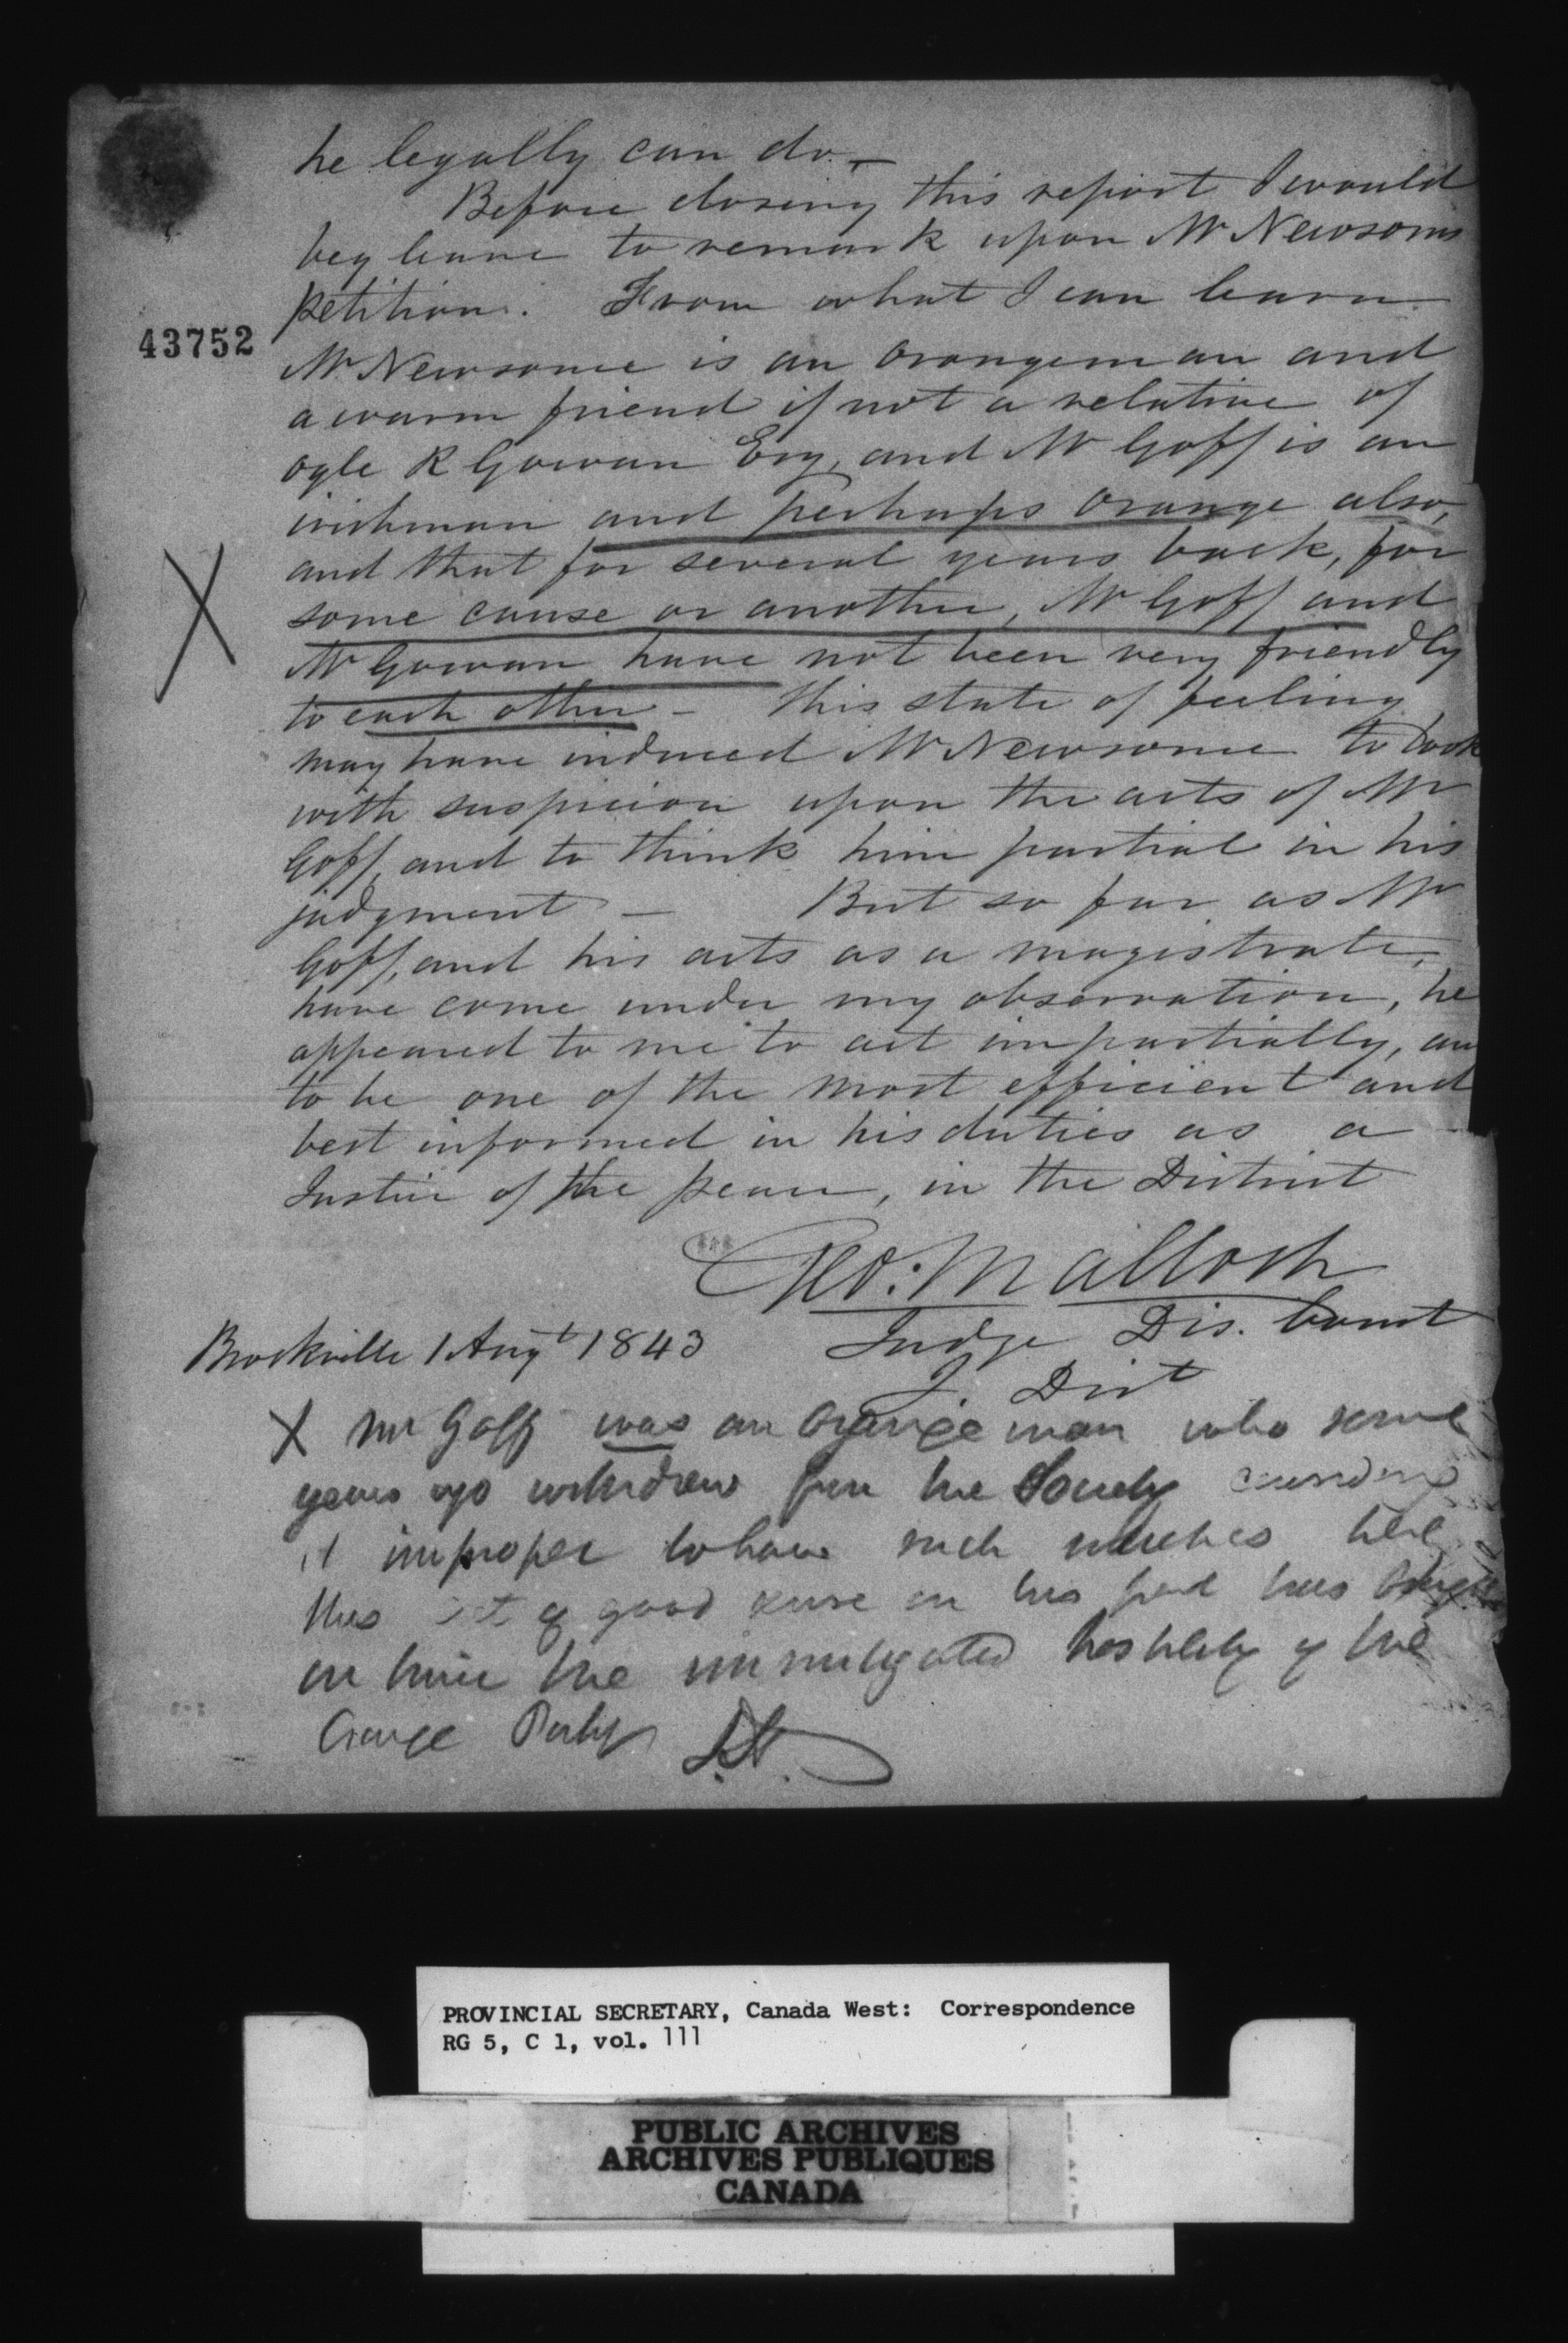 he legally can do. —
Before closing this report I would
beg leave to remark upon Mr Newsoms
petition. From what I can learn
43752
Mr Newsome is an Orangeman and
a warm friend if not a relative of
Ogle R Gowan Esq, and Mr Goff is an
irishman and perhaps Orange also,
and that for several years back, for
X
some cause or another, Mr Goff and
Mr Gowan have not been very friendly
to each other — This state of feeling
may have induced Mr Newsome to look
with suspicion upon the acts of Mr
Goff, and to think him partial in his
judgment — But so far as Mr
Goff, and his acts as a magistrate,
have come under my observation, he
appeared to me to act impartially, an
to be one of the most efficient and
best informed in his duties as a
Justice of the peace, in the District
Geo: Malloch
Judge Dis. Court
Brockville 1 Augt 1843
J. Dist
X Mr Goff was an Orange man who some
years ago withdrew from the Society
it improper to have such here
this act of good sense on his part has
on him the unmitigated hostility of the
Orange Party
PROVINCIAL SECRETARY, Canada West: Correspondence
RG 5, C 1, vol. 111
PUBLIC ARCHIVES
ARCHIVES PUBLIQUES
CANADA